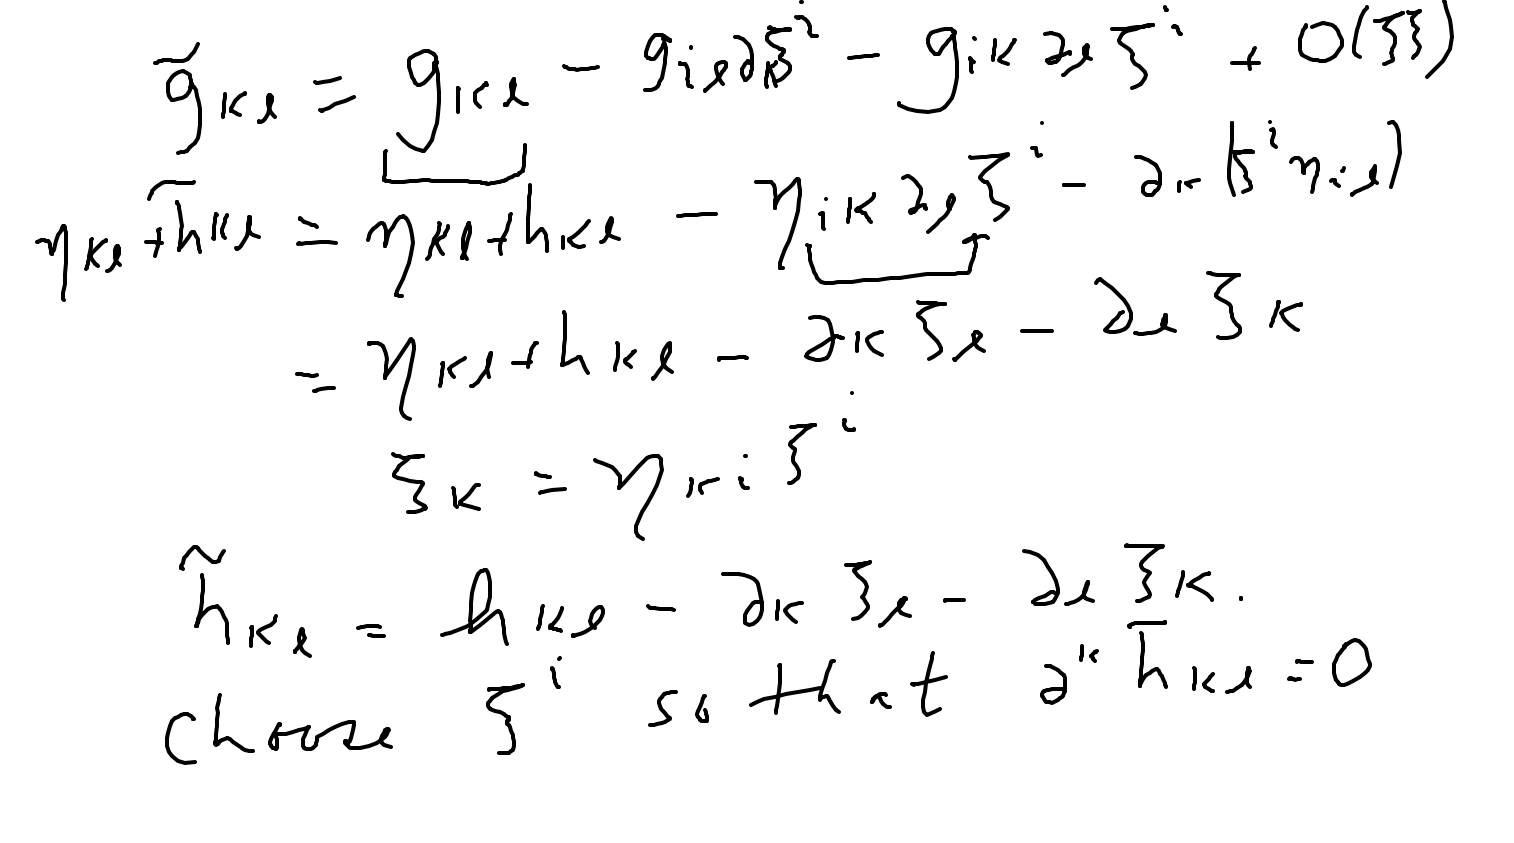 g̃ₖₗ = gₖₗ − gᵢₗ∂ₖξⁱ − gᵢₖ∂ₗξⁱ + O(ξξ)
ηₖₗ + h̃ₖₗ = ηₖₗ + hₖₗ − ηᵢₖ∂ₗξⁱ − ∂ₖ(ξⁱηᵢₗ)
= ηₖₗ + hₖₗ − ∂ₖξₗ − ∂ₗξₖ
ξₖ = ηₖᵢξⁱ
h̃ₖₗ = hₖₗ − ∂ₖξₗ − ∂ₗξₖ.
choose ξⁱ so that ∂ᵏh̄ₖₗ = 0